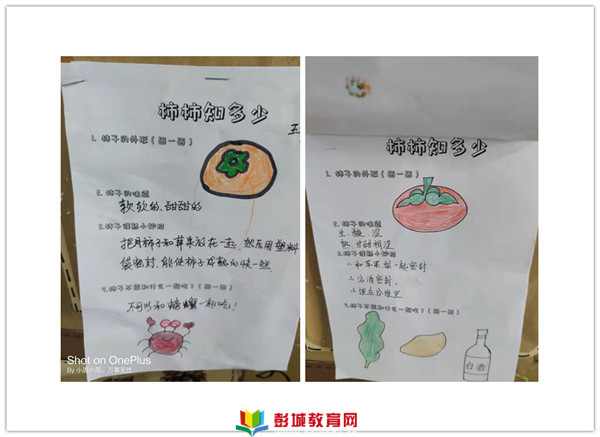 柿柿知多少
五
1. 柿子的外形(画一画)
2. 柿子的味道
软软的、甜甜的
3. 柿子催熟小妙招
把柿子和苹果放在一起,然后用塑料
袋密封,能使柿子成熟的快一些
4. 柿子不能和什么一起吃?(画一画)
不可以和螃蟹一起吃!
Shot on OnePlus
柿柿知多少
1. 柿子的外形(画一画)
2. 柿子的味道
生:酸、涩
熟:甘甜相浸
3. 柿子催熟小妙招
1.和苹果梨一起密封
2.沾酒密封.
3.埋在谷堆里
4. 柿子不能和什么一起吃?(画一画)
白酒
彭城教育网